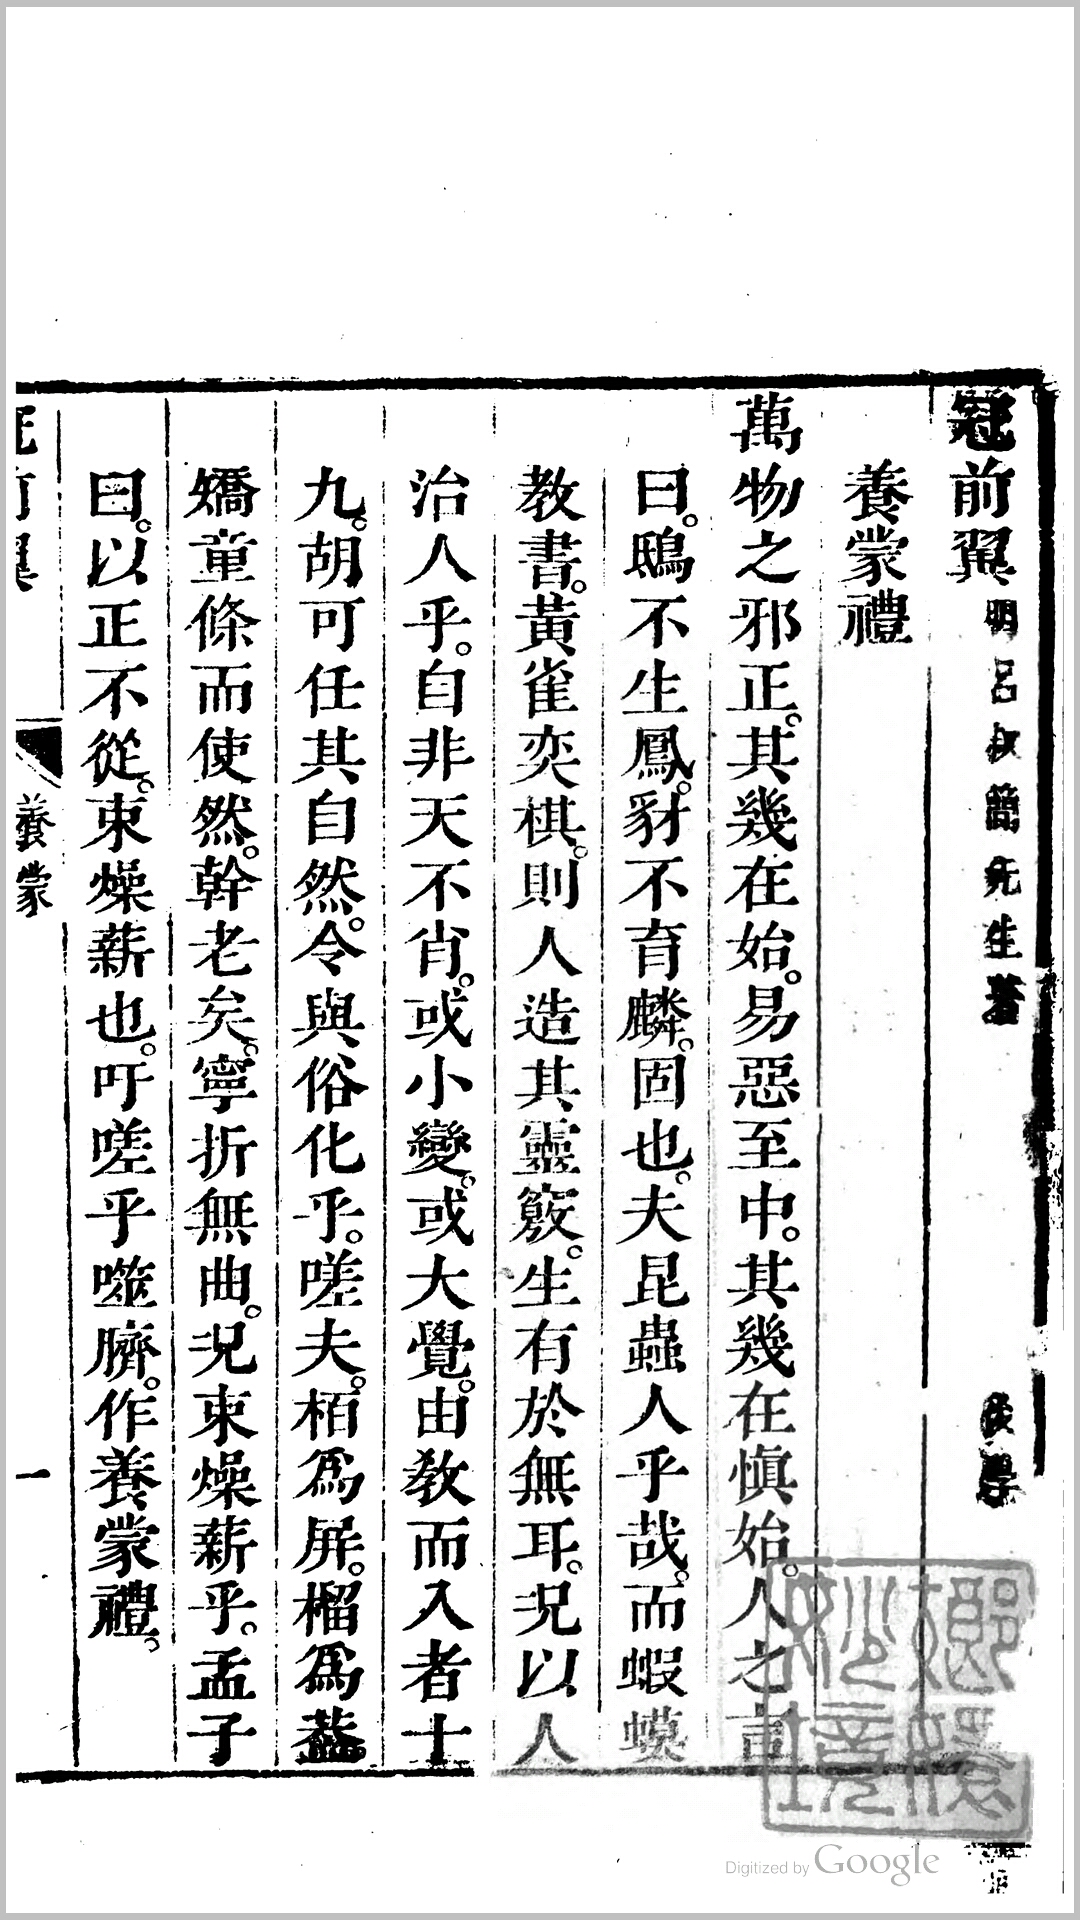 冠前翼 明呂叔簡先生著 後學
養蒙禮
萬物之邪正。其幾在始。易惡至中。其幾在慎始。人之言
曰。鴟不生鳳。豺不育麟。固也。夫昆蟲人乎哉。而蝦蟆
教書。黃雀奕棋。則人造其靈竅。生有於無耳。况以人
治人乎。自非天不肖。或小變。或大覺。由教而入者十
九。胡可任其自然。令與俗化乎。嗟夫。栢爲屏。榴爲
嬌童條而使然。幹老矣。寧折無曲。况束燥薪乎。孟子
曰。以正不從。束燥薪也。吁嗟乎噬臍。作養蒙禮。
冠前翼 養蒙 一
Digitized by Google